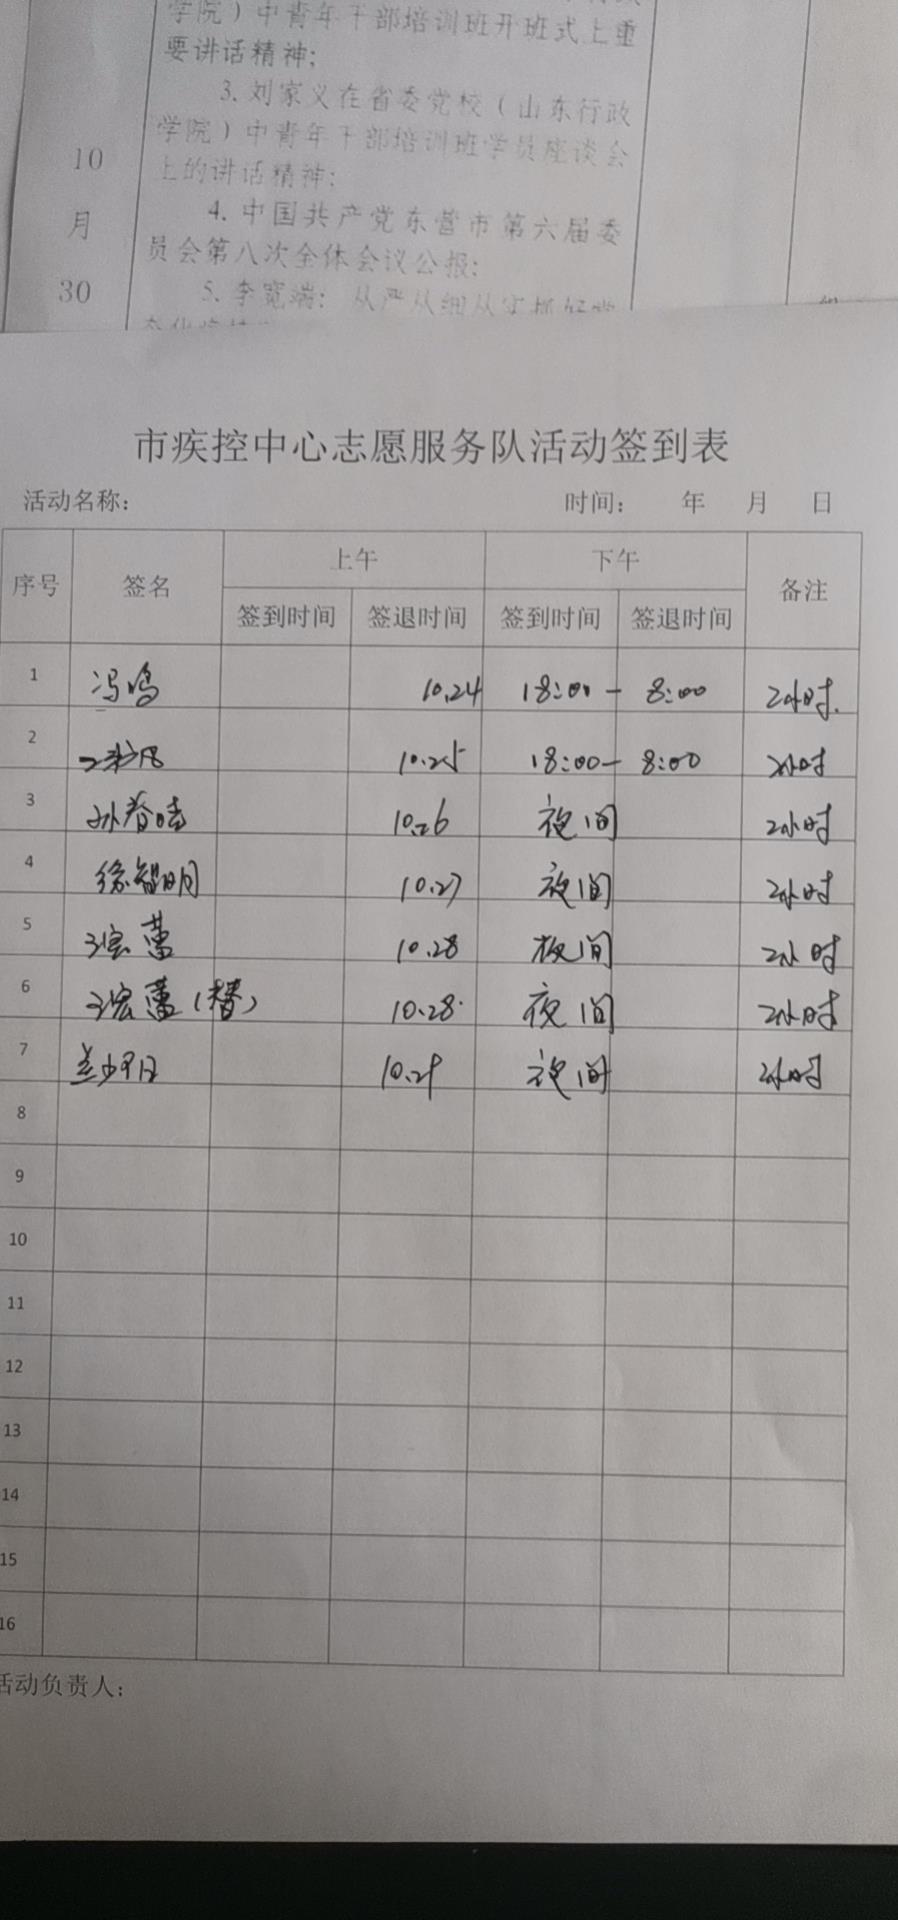 学院）中青年干部培训班开班式上重
要讲话精神；
3. 刘家义在省委党校（山东行政
学院）中青年干部培训班学员座谈会
上的讲话精神；
10
月
30
4. 中国共产党东营市第六届委
员会第八次全体会议公报；
5. 李宽端：从严从细从实抓好常
市疾控中心志愿服务队活动签到表
活动名称： 时间： 年 月 日
序号 签名 上午 下午 备注
签到时间 签退时间 签到时间 签退时间
1 冯鸣 10.24 18:00 - 8:00 2小时.
2 10.25 18:00 - 8:00 2小时
3 孙春晴 10.26 夜间 2小时
4 徐智明 10.27 夜间 2小时
5 王宏蕾 10.28 夜间 2小时
6 王宏蕾（替） 10.28 夜间 2小时
7 10.29 夜间 2小时
8
9
10
11
12
13
14
15
16
活动负责人：